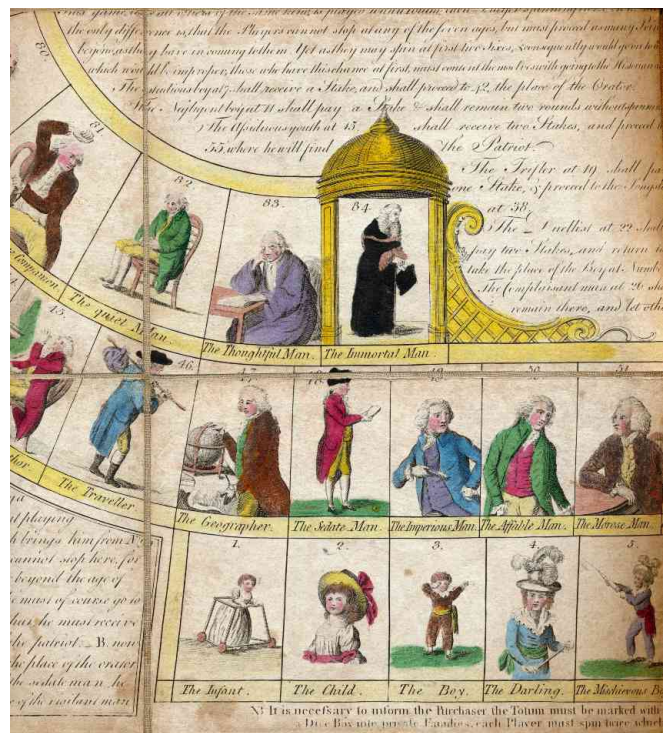 the only difference is, that the Players cannot stop at any of the seven ages, but must proceed as many
beyond, as they have in coming to them. Yet as they may spin at first two Sixes, & consequently would go
which would be improper, those who have this chance at first, must content themselves with going to the Historian
The studious boy at 7 shall receive a Stake, and shall proceed to 42, the place of the Orator.
The Negligent boy at 11 shall pay a Stake & shall remain two rounds without spinning
The Assiduous youth at 15 shall receive two Stakes, and proceed
55, where he will find the Patriot.
The Trifler at 19 shall pay
one Stake, & proceed to the Songster
at 38.
The Duellist at 22 shall
pay two Stakes, and return to
take the place of the Boy at Number
The Complaisant man at 26
remain there, and let
80.
81.
82.
83.
84.
Companion.
The quiet Man.
The Thoughtful Man.
The Immortal Man.
45.
46.
47.
48.
49.
50.
51.
The Traveller
The Geographer.
The Sedate Man.
The Imperious Man.
The Affable Man.
The Morose Man.
at playing
brings him from
cannot stop here, for
beyond the age of
must of course go to
he must receive
the patriot. B. now
the place of the orator
the sedate man he
of the vigilant man
1.
2.
3.
4.
5.
The Infant.
The Child.
The Boy.
The Darling.
The Mischievous
N.B. It is necessary to inform the Purchaser the Totum must be marked with
a Dice Box into private Families, each Player must spin twice